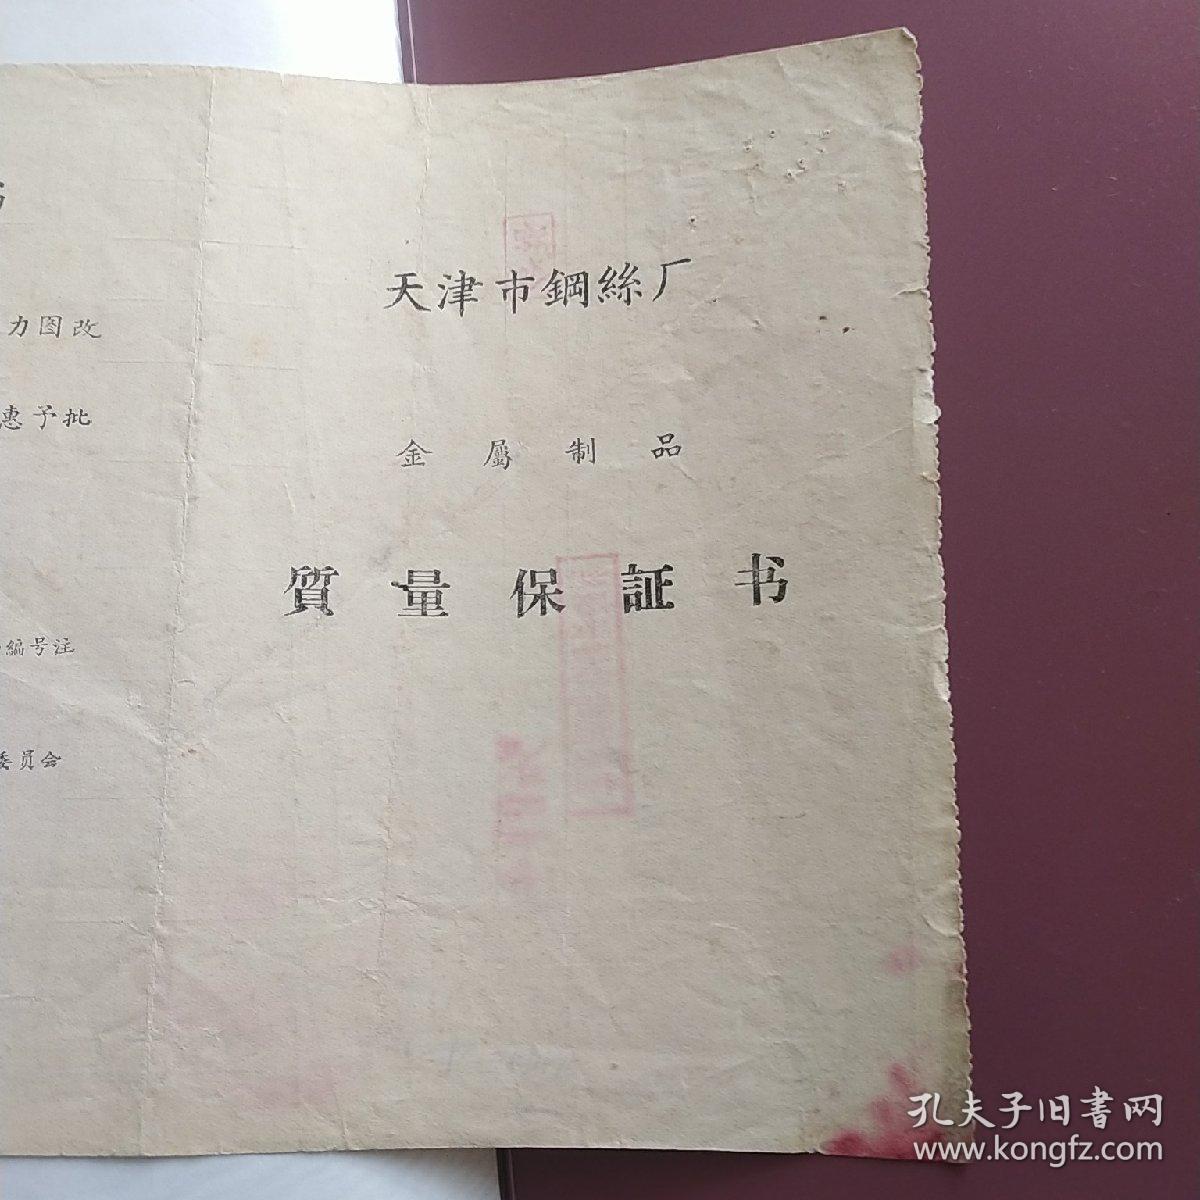 天津市鋼絲厂
金屬制品
質量保証书
力图改
惠予批
編号注
委員会
孔夫子旧書网
www.kongfz.com